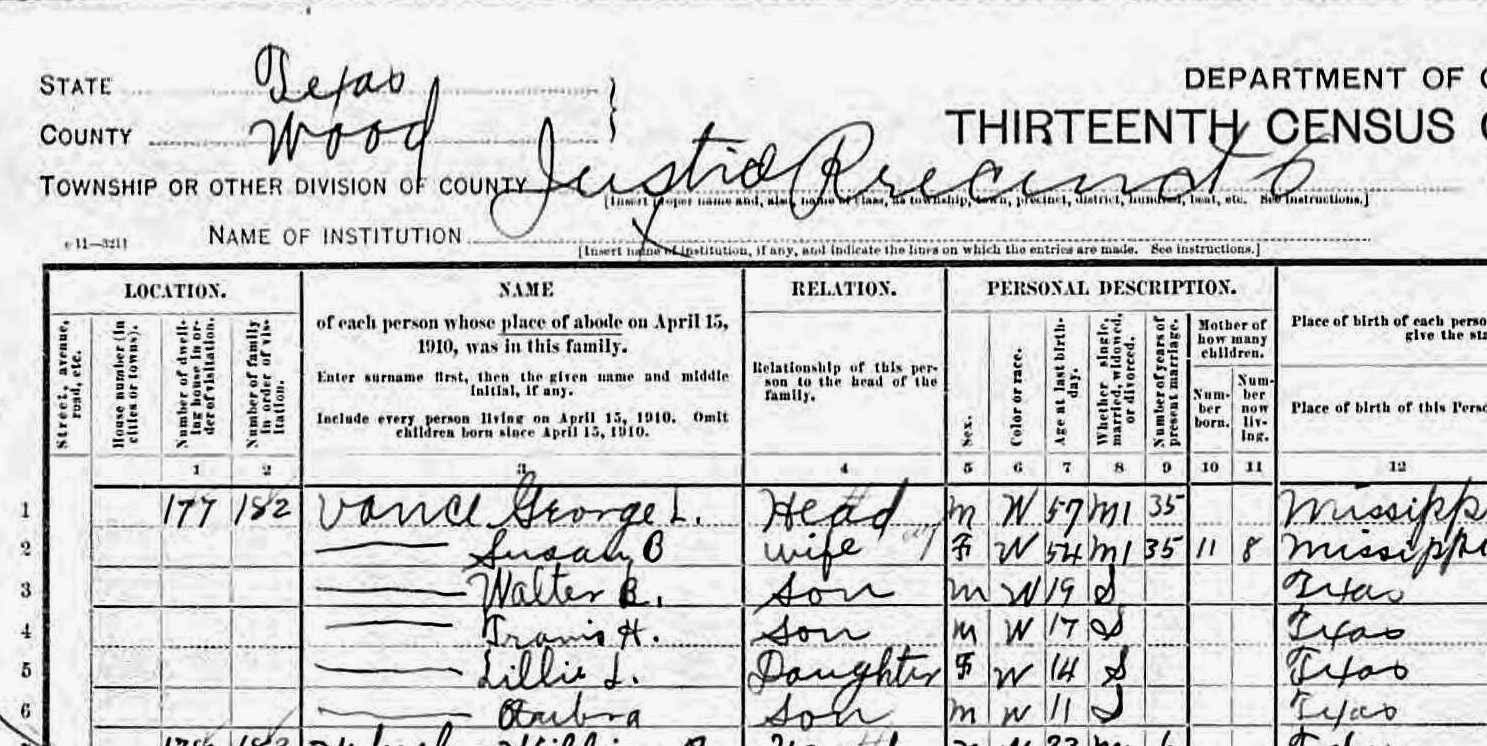 STATE Texas
DEPARTMENT OF
COUNTY Wood
THIRTEENTH CENSUS
TOWNSHIP OR OTHER DIVISION OF COUNTY Justice Precinct 6
[Insert proper name and, also, name of class, as township, town, precinct, district, hundred, beat, etc. See instructions.]
NAME OF INSTITUTION X
[Insert name of institution, if any, and indicate the lines on which the entries are made. See instructions.]
LOCATION.
Street, avenue, road, etc.
House number (in cities or towns).
Number of dwelling house in order of visitation.
Number of family in order of visitation.
NAME
of each person whose place of abode on April 15,
1910, was in this family.
Enter surname first, then the given name and middle
initial, if any.
Include every person living on April 15, 1910. Omit
children born since April 15, 1910.
RELATION.
Relationship of this per-
son to the head of the
family.
PERSONAL DESCRIPTION.
Sex.
Color or race.
Age at last birth-
day.
Whether single,
married, widowed,
or divorced.
Number of years of
present marriage.
Mother of
how many
children.
Num-
ber
born.
Num-
ber
now
liv-
ing.
Place of birth of each perso
give the sta
Place of birth of this Perso
1 2 3 4 5 6 7 8 9 10 11 12
1 177 182 Vance George L. Head M W 57 M1 35 Missipp
2 Susan B wife F W 54 M1 35 11 8 Missippi
3 Walter B. Son M W 19 S Texas
4 Travis H. Son M W 17 S Texas
5 Lillie L. Daughter F W 14 S Texas
6 Son M W 11 S Texas